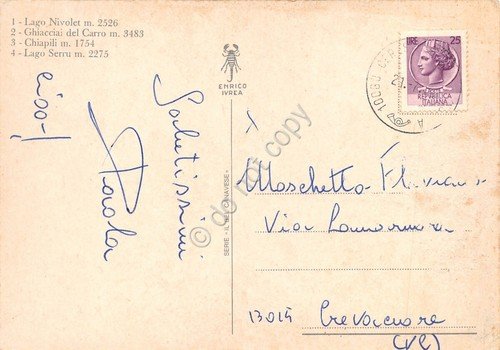 1 - Lago Nivolet m. 2526
2 - Ghiacciai del Carro m. 3483
3 - Chiapili m. 1754
4 - Lago Serru m. 2275
ciao!
Salutissimi
Paola
ENRICO
IVREA
SERIE «IL BEL CANAVESE»
LIRE 25
REPUBBLICA
ITALIANA
10080
Moschetto
Via
13014 Crevacuore
(VC)
© do not copy